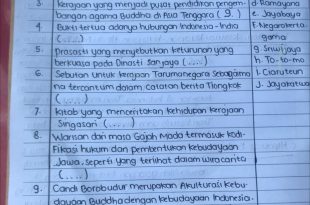 3. Kerajaan yang menjadi pusat pendidikan pengem- d. Ramayana
bangan agama Buddha di Asia Tenggara ( g. ) e. Jayabaya
4. Bukti tertua adanya hubungan Indonesia - India f. Negarakerta
(....) gama
5. Prasasti yang menyebutkan keturunan yang g. Sriwijaya
berkuasa pada Dinasti Sanjaya (....) h. To-lo-mo
6. Sebutan untuk kerajaan Tarumanegara sebagaima i. Ciaruteun
na tercantum dalam catatan berita Tiongkok J. Jayakatwa
(....)
7. Kitab yang menceritakan kehidupan kerajaan
Singasari (....)
8. Warisan dari masa Gajah Mada termasuk Kodi-
Fikasi hukum dan pembentukan kebudayaan
Jawa, seperti yang terlihat dalam wiracarita
(....)
9. Candi Borobudur merupakan Akulturasi kebu-
dayaan Buddha dengan kebudayaan Indonesia.